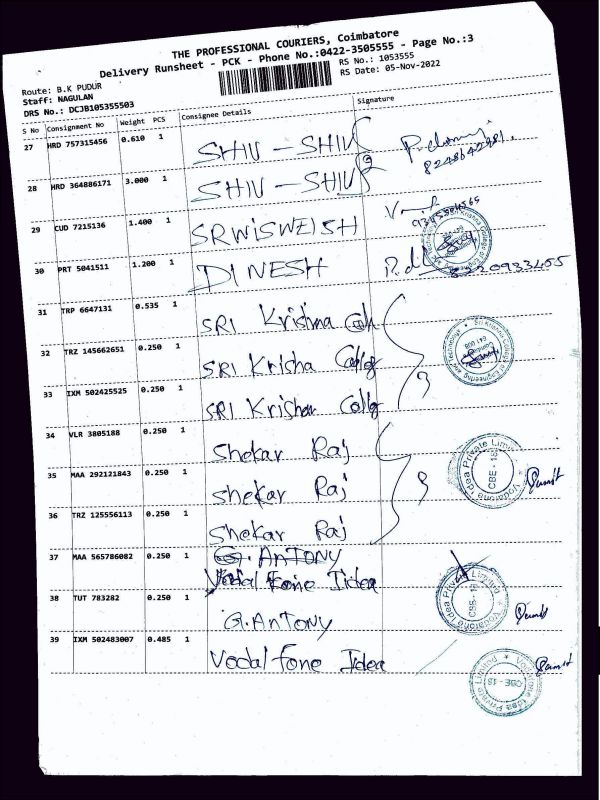 THE PROFESSIONAL COURIERS, Coimbatore
Delivery Runsheet - PCK - Phone No.:0422-3505555 - Page No.:3
Route: B.K PUDUR
RS No.: 1053555
Staff: NAGULAN
RS Date: 05-Nov-2022
DRS No.: DCJB105355503
S No Consignment No Weight PCS Consignee Details Signature
27 HRD 757315456 0.610 1 SHIV - SHIV
28 HRD 364886171 3.000 1 SHIV - SHIV 2
29 CUD 7215136 1.400 1 SRWISWEISH
30 PRT 5041511 1.200 1 DINESH 8220933455
31 TRP 6647131 0.535 1 SRI Krishna
32 TRZ 145662651 0.250 1 SRI Krisha Collg
33 IXM 502425525 0.250 1 SRI Krishar Collg 3
34 VLR 3805188 0.250 1 Shekar Raj
35 MAA 292121843 0.250 1 Shekar Raj 3
36 TRZ 125556113 0.250 1 Shekar Raj
37 MAA 565786082 0.250 1 G. ANTONY
Vodal fone Iidea
38 TUT 783282 0.250 1 G. Antony
39 IXM 502483007 0.485 1 Vodal fone Idea
Sri Krishna College of Engineering and Technology
641 008
Vodafone Idea Private Limited
CBE - 18
Vodafone Idea Private Limited
CBE - 18
Vodafone Idea Private Limited
CBE - 18